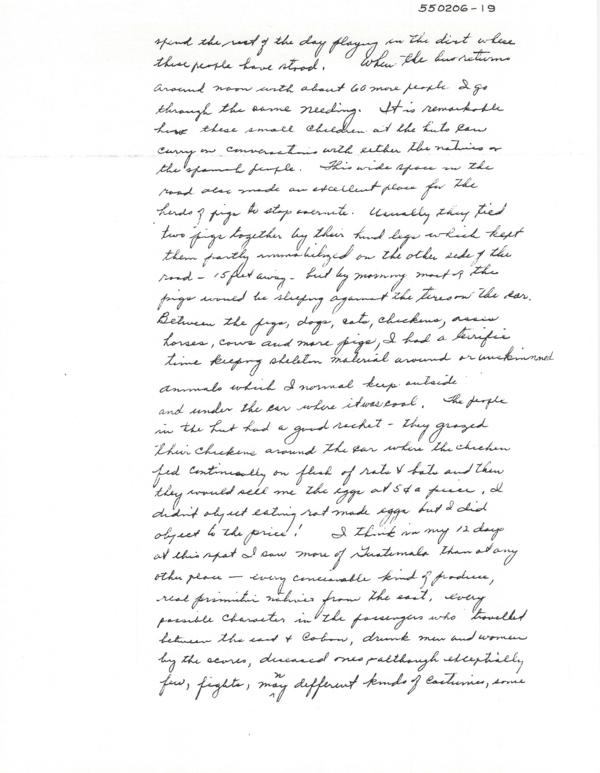 550206-19
spend the rest of the day playing in the dirt where
these people have stood. When the bus returns
around noon with about 60 more people I go
through the same needling. It is remarkable
how these small children at the huts can
carry on conversations with either the natives or
the spanish people. This wide space in the
road also made an excellent place for the
herds of pigs to stop overnite. Usually they tied
two pigs together by their hind legs which kept
them partly immobilized on the other side of the
road - 15 feet away - but by morning most of the
pigs would be sleeping against the tires on the car.
Between the pigs, dogs, cats, chickens, asses
horses, cows and more pigs, I had a terrific
time keeping skeleton material around or unskinned
animals which I normal keep outside
and under the car where it was cool. The people
in the hut had a good racket - they grazed
their chickens around the car where the chicken
fed continually on flesh of rats & bats and then
they would sell me the eggs at 5¢ a piece. I
didn't object eating rat made eggs but I did
object to the price! I think in my 12 days
at this spot I saw more of Guatemala than at any
other place — every conceivable kind of produce,
real primitive natives from the east, every
possible character in the passengers who travelled
between the east & Coban, drunk men and women
by the scores, diseased ones, although exceptially
few, fights, many different kinds of costumes, some